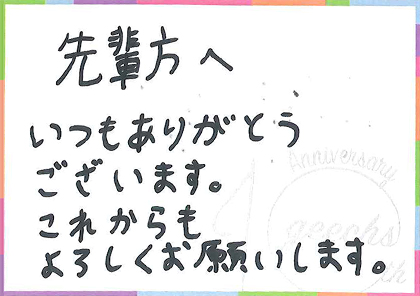 先輩方へ
いつもありがとう
ございます。
これからも
よろしくお願いします。
Anniversary